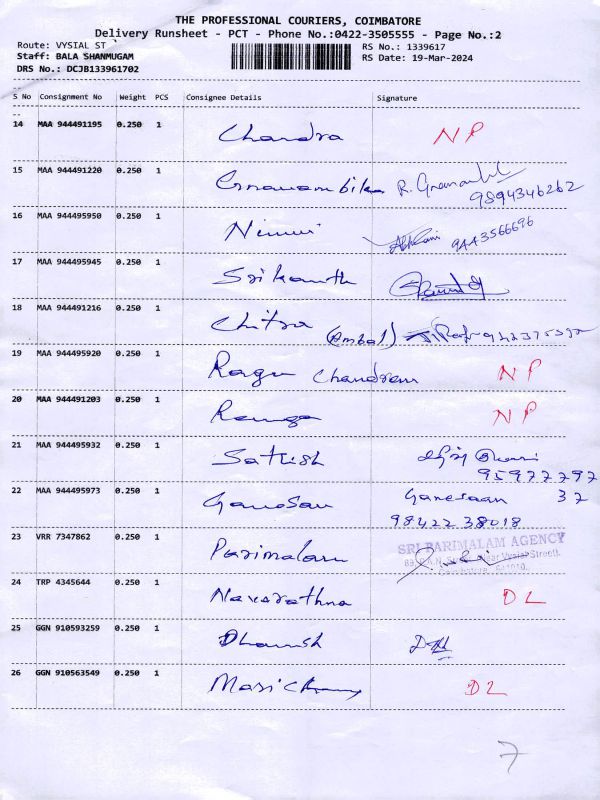 THE PROFESSIONAL COURIERS, COIMBATORE
Delivery Runsheet - PCT - Phone No.:0422-3505555 - Page No.:2
Route: VYSIAL ST
RS No.: 1339617
Staff: BALA SHANMUGAM
RS Date: 19-Mar-2024
DRS No.: DCJB133961702
S No Consignment No Weight PCS Consignee Details Signature
14 MAA 944491195 0.250 1 Chandra NP
15 MAA 944491220 0.250 1
9894346262
16 MAA 944495950 0.250 1 9443566696
17 MAA 944495945 0.250 1 Srikanth
18 MAA 944491216 0.250 1 Chitra (Ambal)
19 MAA 944495920 0.250 1 Ragu Chandran NP
20 MAA 944491203 0.250 1 Ranga NP
21 MAA 944495932 0.250 1 Sathish
95977797
22 MAA 944495973 0.250 1 Ganesan Ganesaan 37
98422 38018
23 VRR 7347862 0.250 1 Parimalam SRI PARIMALAM AGENCY
24 TRP 4345644 0.250 1 Navarathna DL
25 GGN 910593259 0.250 1 Dhanush
26 GGN 910563549 0.250 1 DL
7